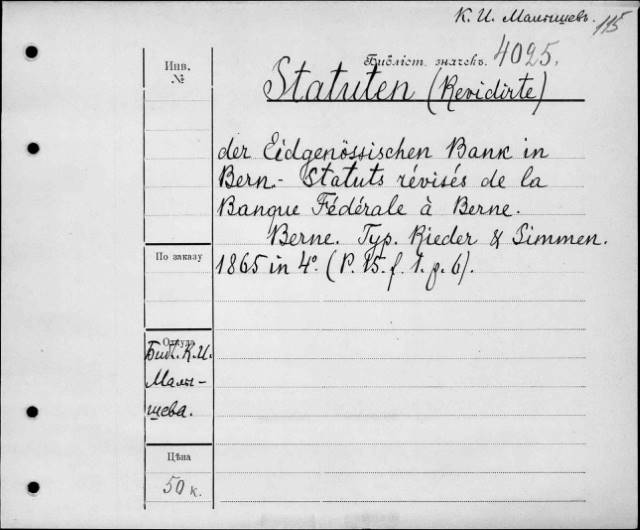 К. И. Малышевъ. 115
Библіот. значекъ. 4025.
Инв.
№
Statuten (Revidirte)
der Eidgenössischen Bank in
Bern.- Statuts révisés de la
Banque Fédérale à Berne.
Berne. Typ. Rieder & Simmen.
1865 in 4°. (P. 15. f. 1. p. 6).
По заказу
Откуда
Библ. К.И.
Малы-
шева.
Цѣна
50 к.